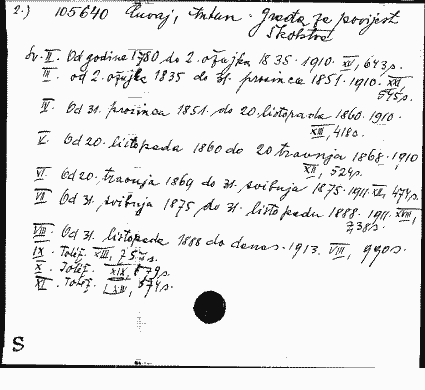 2.) 105640 Cuvaj, Antun. Građa za povijest
školstva
Sv. II. Od godine 1780 do 2. ožujka 1835. 1910. XV, 643 s.
III. od 2. ožujka 1835 do 31. prosinca 1851. 1910. XXI,
545 s.
IV. Od 31. prosinca 1851. do 20 listopada 1860. 1910.
XIII, 418 s.
V. Od 20. listopada 1860 do 20 travnja 1868. 1910
XII, 524 s.
VI. Od 20. travnja 1869 do 31. svibnja 1875. 1911. XII, 474 s.
VII. Od 31. svibnja 1875 do 31. listopada 1888. 1911. XVIII,
738 s.
VIII. Od 31. listopada 1888 do danas. 1913. VIII, 990 s.
IX. Tolej. XIII, s.
X. Tolej. XIX, 879 s.
XI. Tolej. 574 s.
S